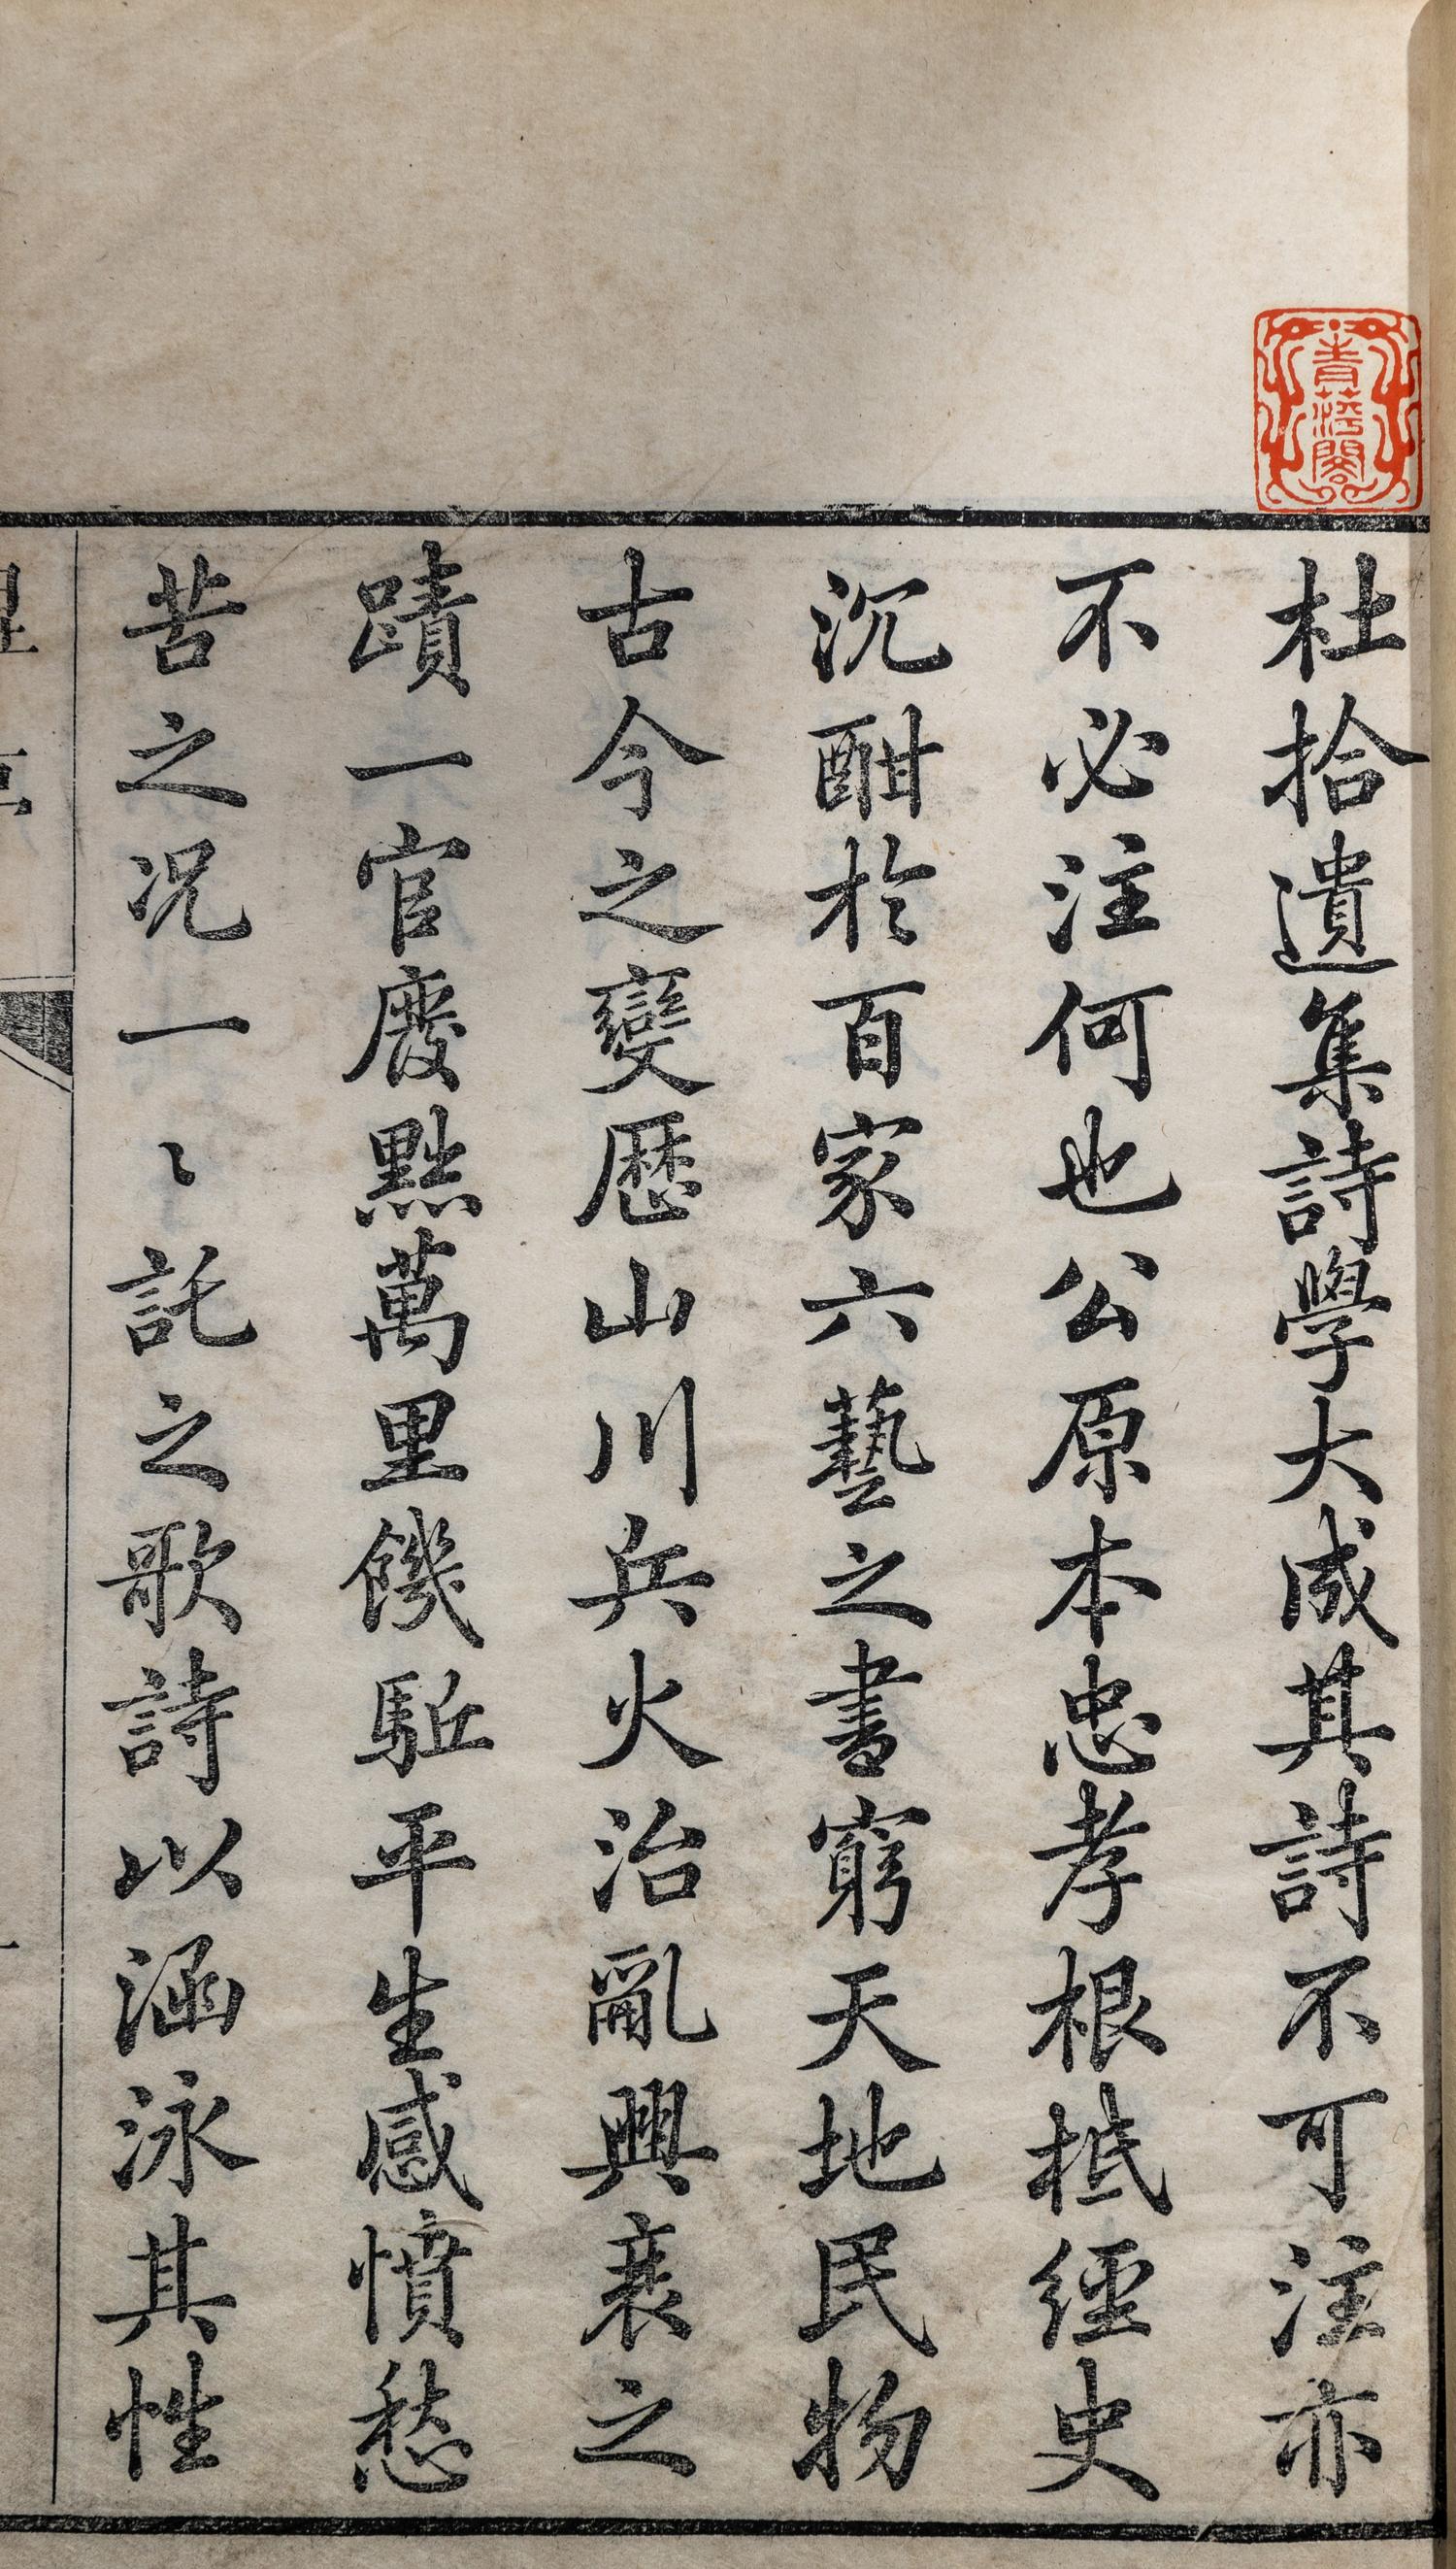 杜拾遺集詩學大成其詩不可注亦
不必注何也公原本忠孝根柢經史
沉酣於百家六藝之書窮天地民物
古今之變歷山川兵火治亂興衰之
蹟一官廢黜萬里饑驅平生感憤愁
苦之况一〻託之歌詩以涵泳其性